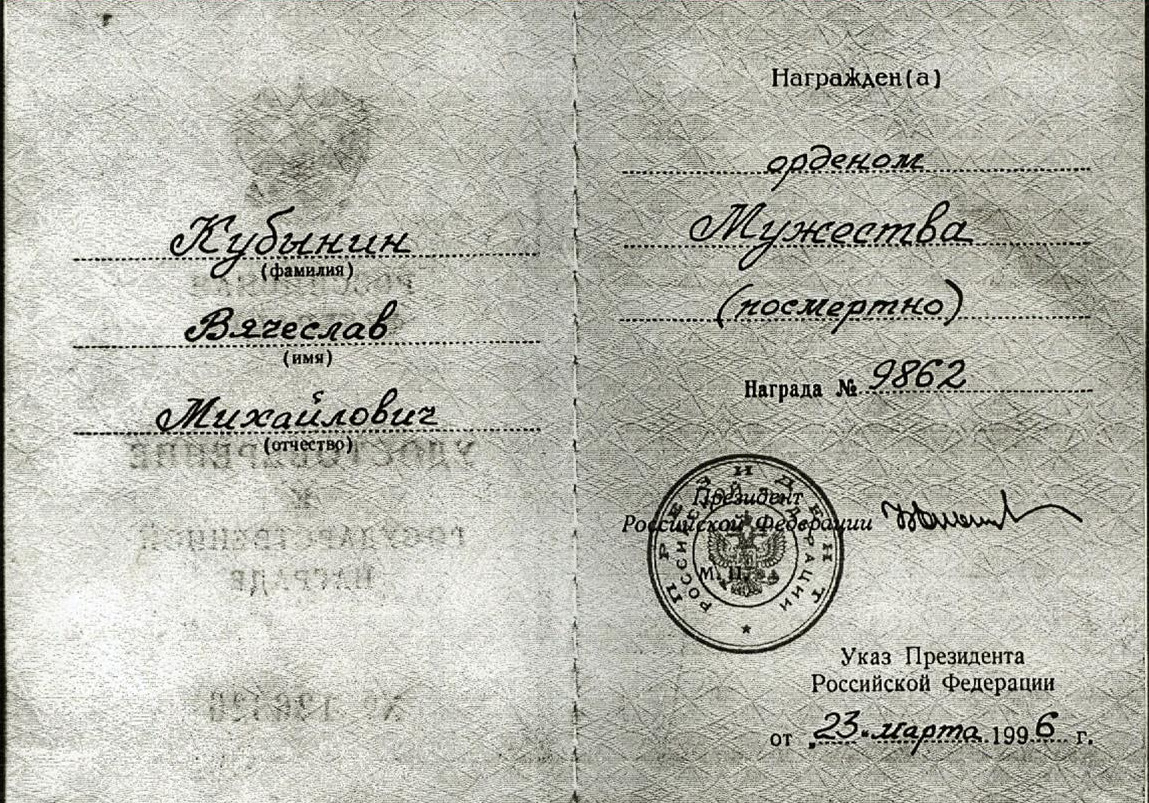 Кубынин
(фамилия)
Вячеслав
(имя)
Михайлович
(отчество)
УДОСТОВЕРЕНИЕ
К
ГОСУДАРСТВЕННОЙ
НАГРАДЕ
Награжден(а)
орденом
Мужества
(посмертно)
Награда № 9862
Президент
Российской Федерации
М. П.
ПРЕЗИДЕНТ
РОССИЙСКОЙ ФЕДЕРАЦИИ
Указ Президента
Российской Федерации
от „23" марта 1996 г.